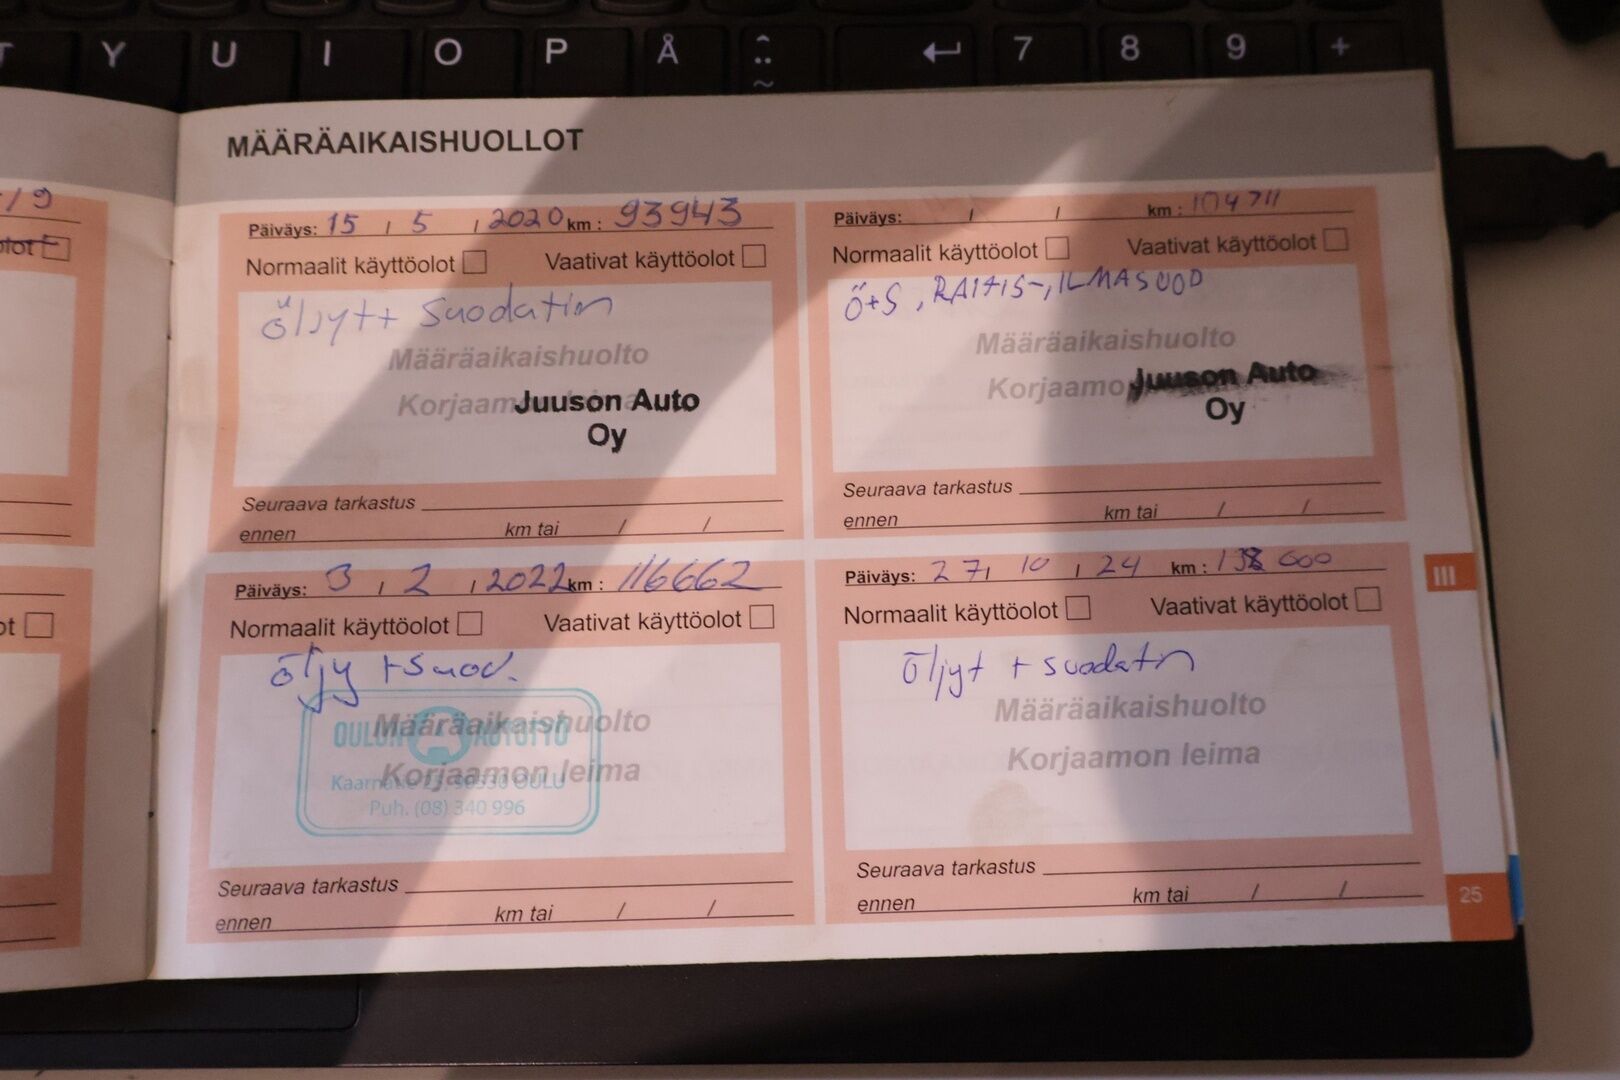 T Y U I O P Å ^ ¨ ~ ↵ 7 8 9 +
MÄÄRÄAIKAISHUOLLOT
/ 9
Päiväys: 15 / 5 / 2020 km : 93943
Normaalit käyttöolot Vaativat käyttöolot
öljyt + suodatin
Määräaikaishuolto
Korjaamon leima
Juuson Auto
Oy
Seuraava tarkastus
ennen km tai / /
Päiväys: / / km : 104711
Normaalit käyttöolot Vaativat käyttöolot
Ö+S, RAITIS-, ILMASUOD
Määräaikaishuolto
Korjaamo
Juuson Auto
Oy
Seuraava tarkastus
ennen km tai / /
ot
Päiväys: 3 / 2 / 2022 km : 116662
Normaalit käyttöolot Vaativat käyttöolot
öljy + suod.
Määräaikaishuolto
Korjaamon leima
OULUN AUTOTYÖ
90530 OULU
Puh. (08) 340 996
Seuraava tarkastus
ennen km tai / /
Päiväys: 27 / 10 / 24 km : 138 000
Normaalit käyttöolot Vaativat käyttöolot
öljyt + suodatin
Määräaikaishuolto
Korjaamon leima
Seuraava tarkastus
ennen km tai / /
III
25